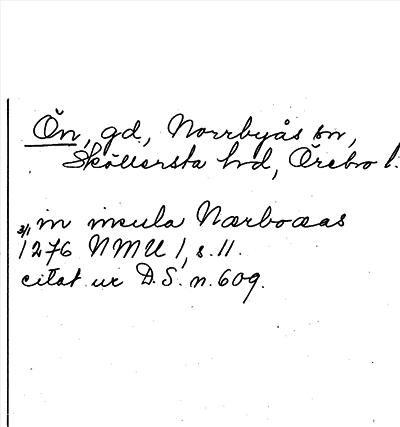 Ön, gd, Norrbyås sn,
Sköllersta hd, Örebro l.
in insula Nærboaas
3/11 1276 NMU 1, s. 11.
citat ur D.S. n. 609.